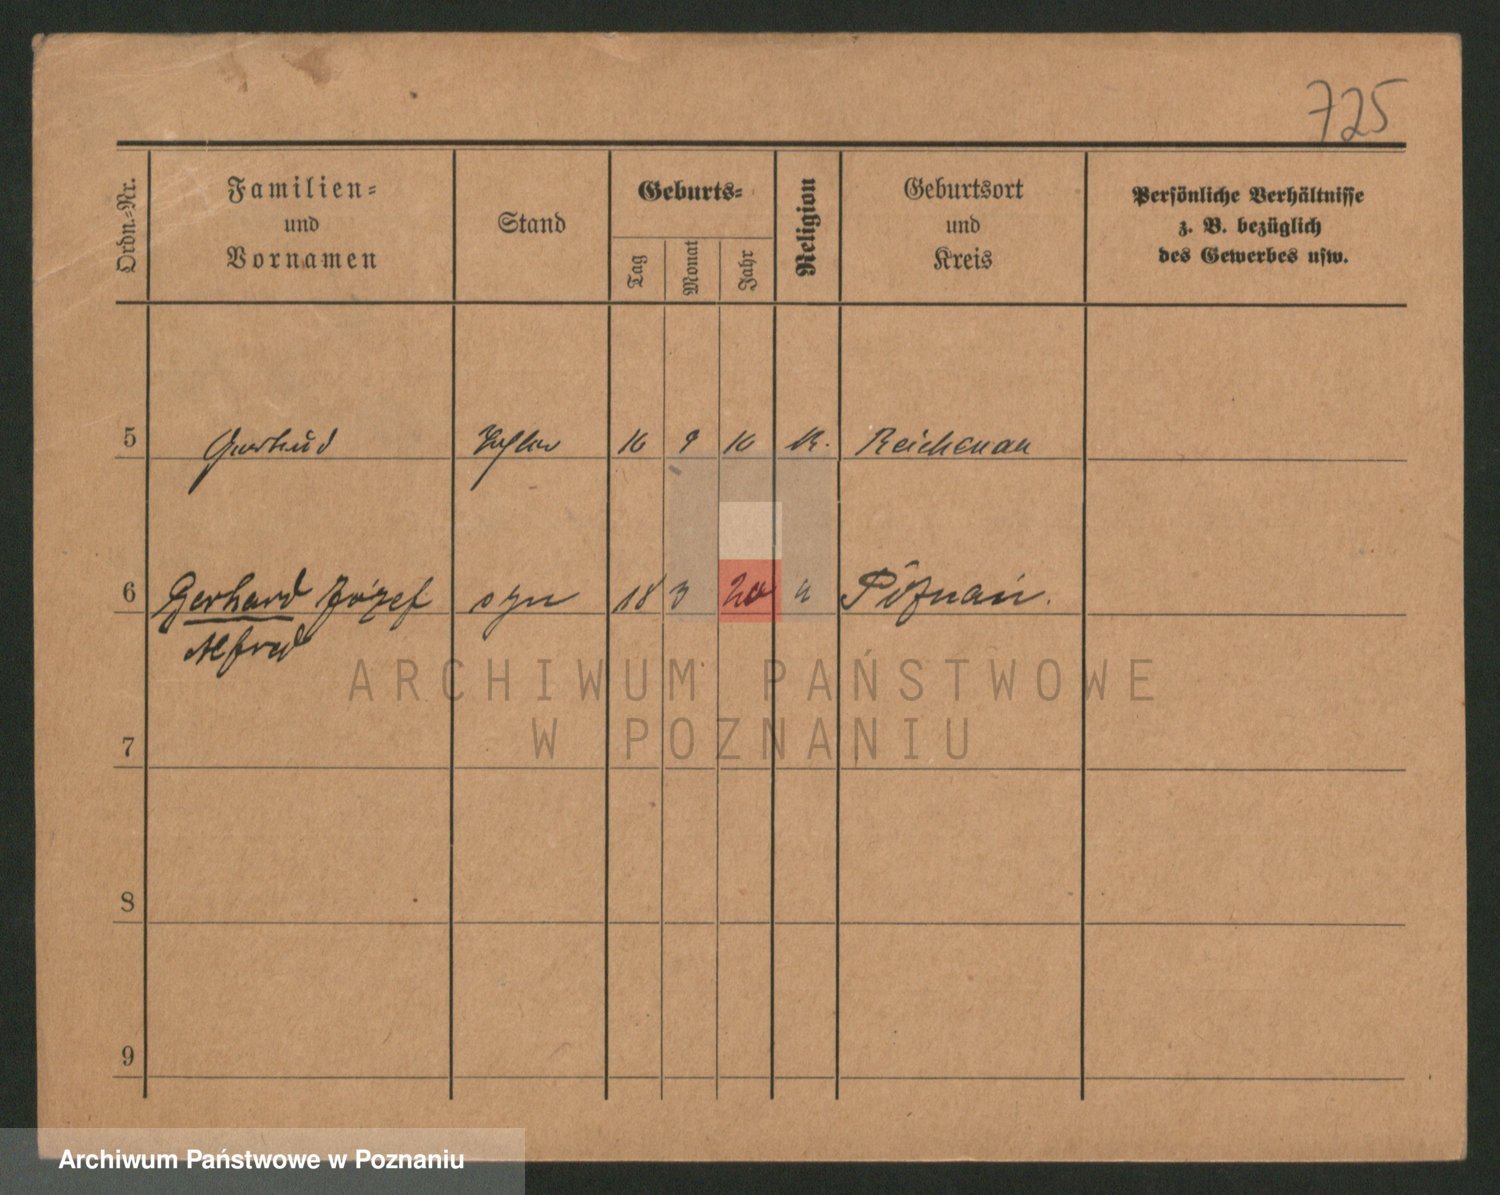 725
Ordn.-Nr.
Familien-
und
Vornamen
Stand
Geburts-
Tag
Monat
Jahr
Religion
Geburtsort
und
Kreis
Persönliche Verhältnisse
z. B. bezüglich
des Gewerbes usw.
5 16 9 16 K. Reichenau
6 Gerhard Józef syn 18 3 20 Poznań.
Alfred
ARCHIWUM PAŃSTWOWE
W POZNANIU
7
8
9
Archiwum Państwowe w Poznaniu